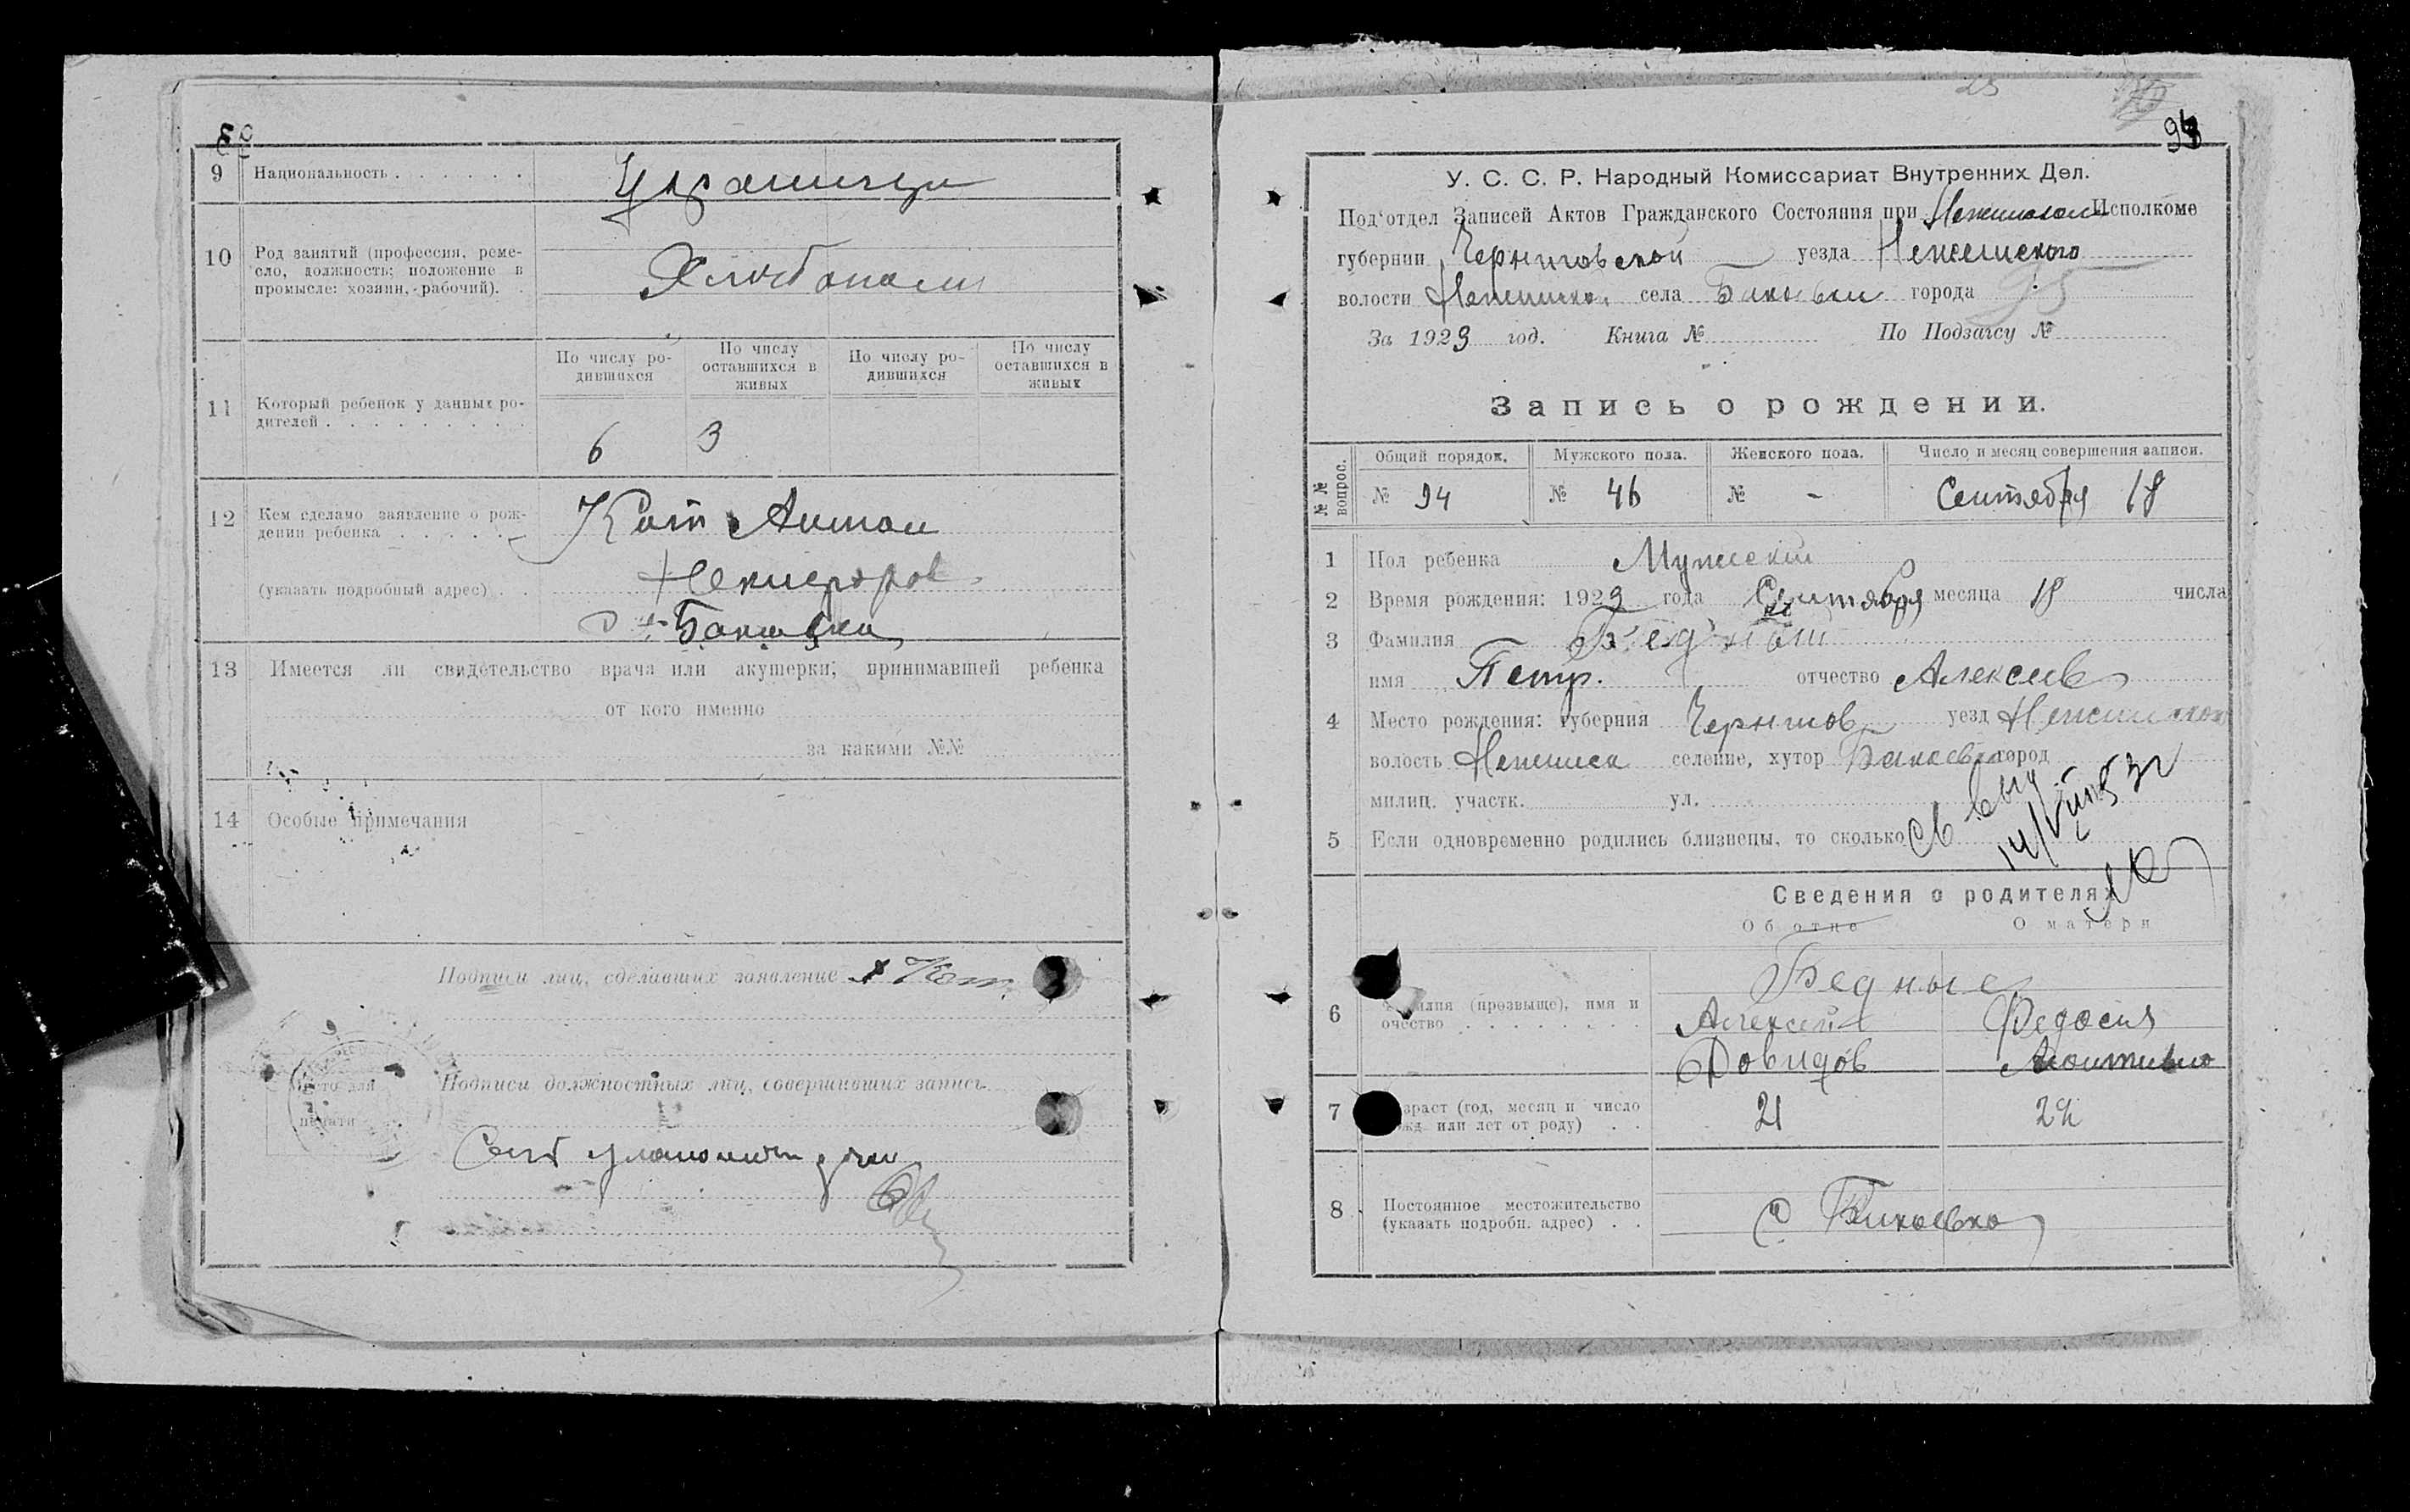 9 Национальность . . . . . . Украинци
10 Род занятий (профессия, реме-
сло, должность; положение в
промысле: хозяин, рабочий). .
Хлебопаш
11 Который ребенок у данных ро-
дителей . . . . . . . . .
По числу ро-
дившихся
По числу
оставшихся в
живых
По числу ро-
дившихся
По числу
оставшихся в
живых
6 3
12 Кем сделано заявление о рож-
дении ребенка . . . . . .
(указать подробный адрес) . .
Кот Антон
Никифоров
13 Имеется ли свидетельство врача или акушерки; принимавшей ребенка
от кого именно
за какими №№
14 Особые примечания
Подписи лиц, сделавших заявление Кот
Место для
печати
Подписи должностных лиц, совершивших запись.
93
У. С. С. Р. Народный Комиссариат Внутренних Дел.
Под‘отдел Записей Актов Гражданского Состояния при Исполкоме
губернии Черниговской уезда Неженского
волости села города
За 1923 год. Книга № По Подзагсу №
Запись о рождении.
№№ вопрос.
Общий порядок. Мужского пола. Женского пола. Число и месяц совершения записи.
№ 94 № 46 № - Сентября 18
1 Пол ребенка Мужский
2 Время рождения: 1923 года Сентября месяца 18 числа
3 Фамилия Бедный
имя Петр. отчество Алексеев
4 Место рождения: губерния Чернигов уезд
волость селение, хутор город
милиц. участк. ул.
5 Если одновременно родились близнецы, то сколько
Сведения о родителях
Об отце О матери
6 Фамилия (прозвыще), имя и
очество . . . . . . . .
Бедные
Алексей Федосия
Довидов
7 Возраст (год, месяц и число
рожд. или лет от роду) . .
21 22
8 Постоянное местожительство
(указать подробн. адрес) . .